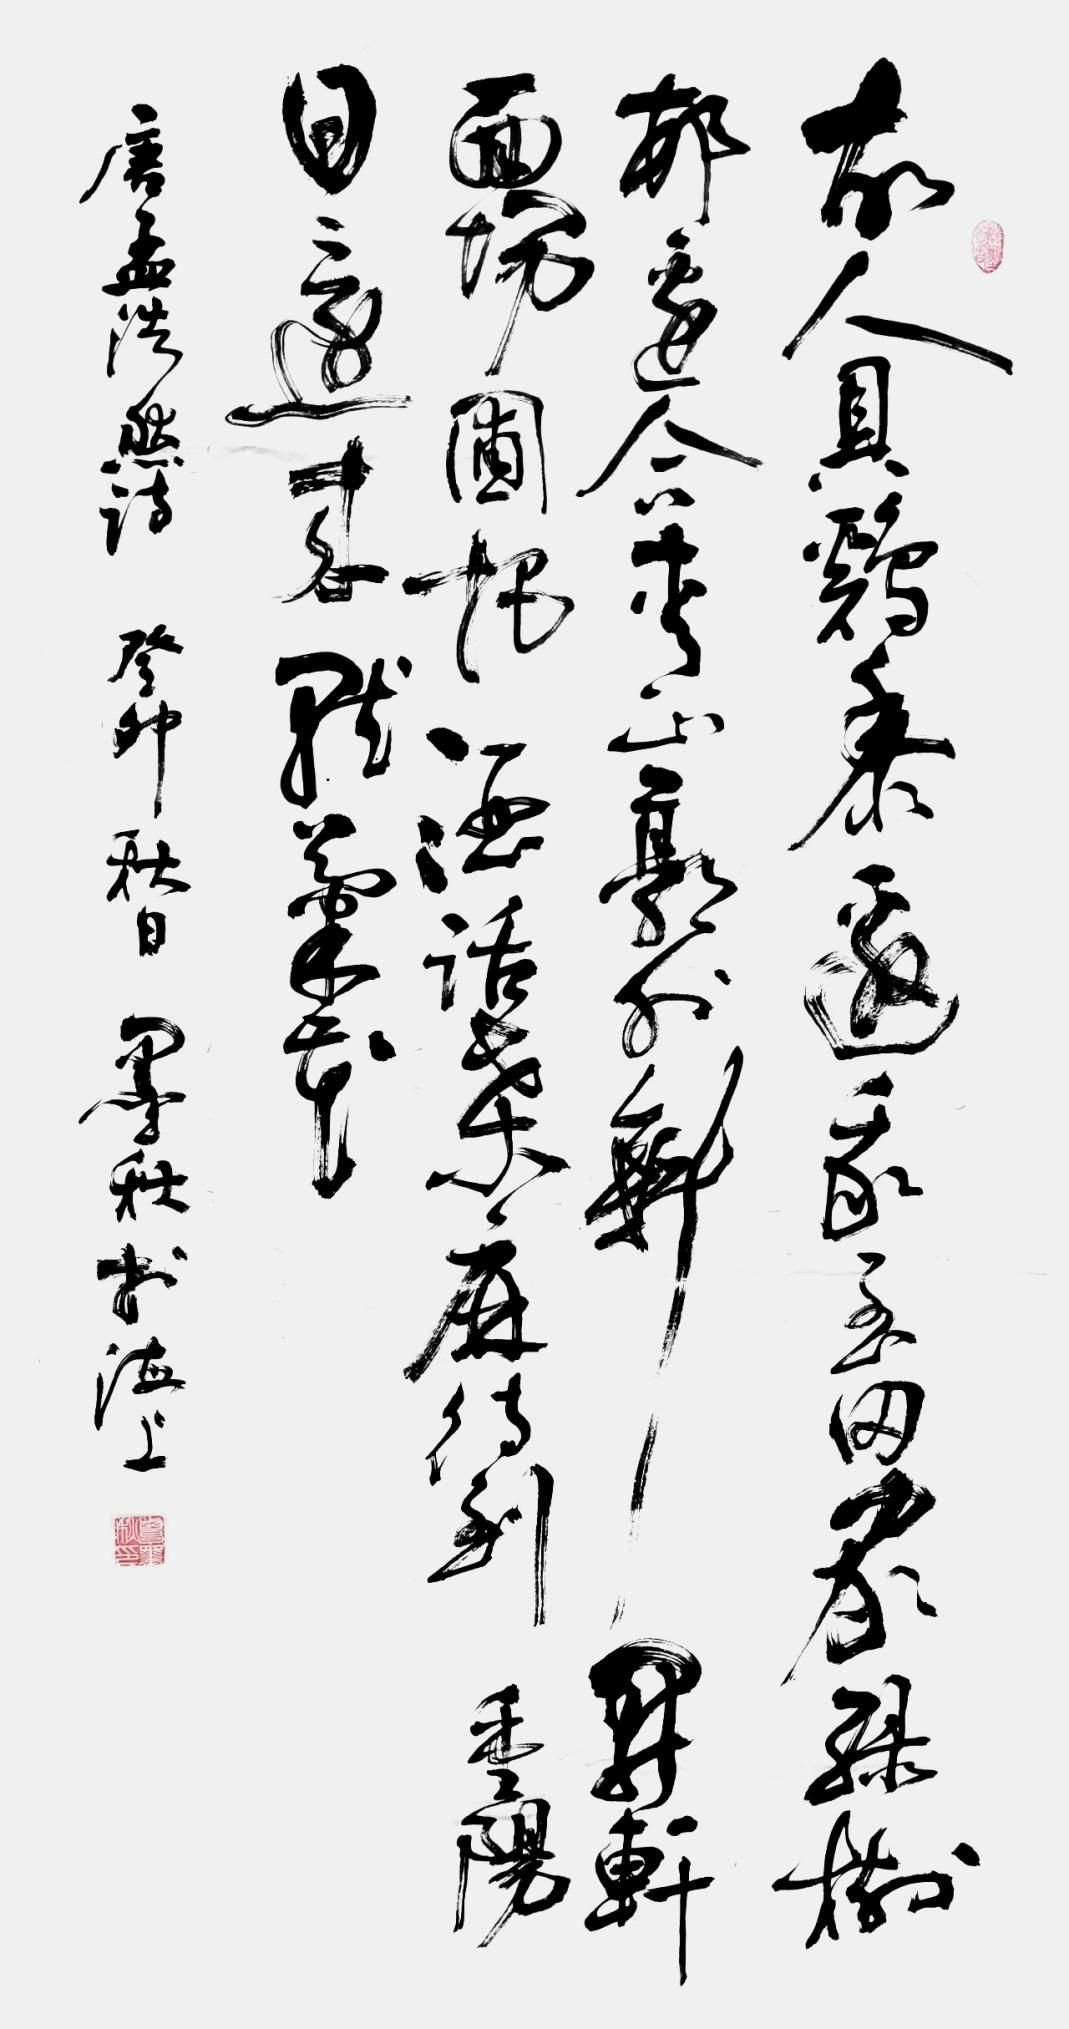 故人具鷄黍邀我至田家綠樹
邨邊合青山郭外斜開軒
面場圃把酒話桑麻待到重陽
日還來就菊花
唐孟浩然詩 癸卯秋日 墨秋書海上